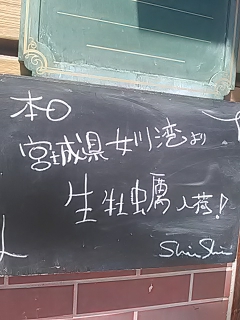 本日
宮城県女川湾より
生牡蠣入荷!
ShinShin